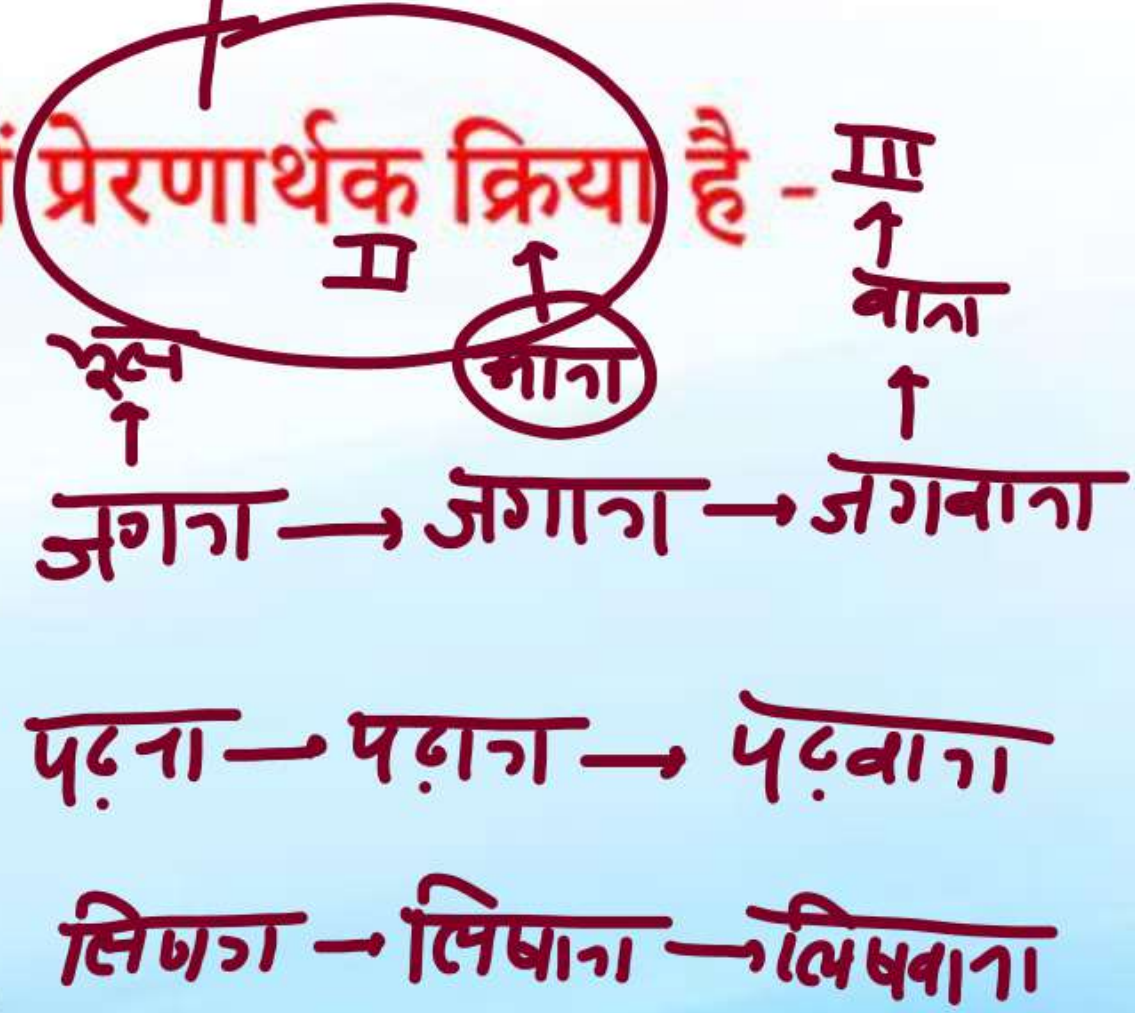 प्रेरणार्थक क्रिया है - III
II वाना
मूल आना
जगना → जगाना → जगवाना
पढ़ना → पढ़ाना → पढ़वाना
लिखना → लिषाना → लिषवाना